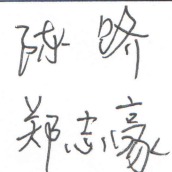 陈哕
郑志豪